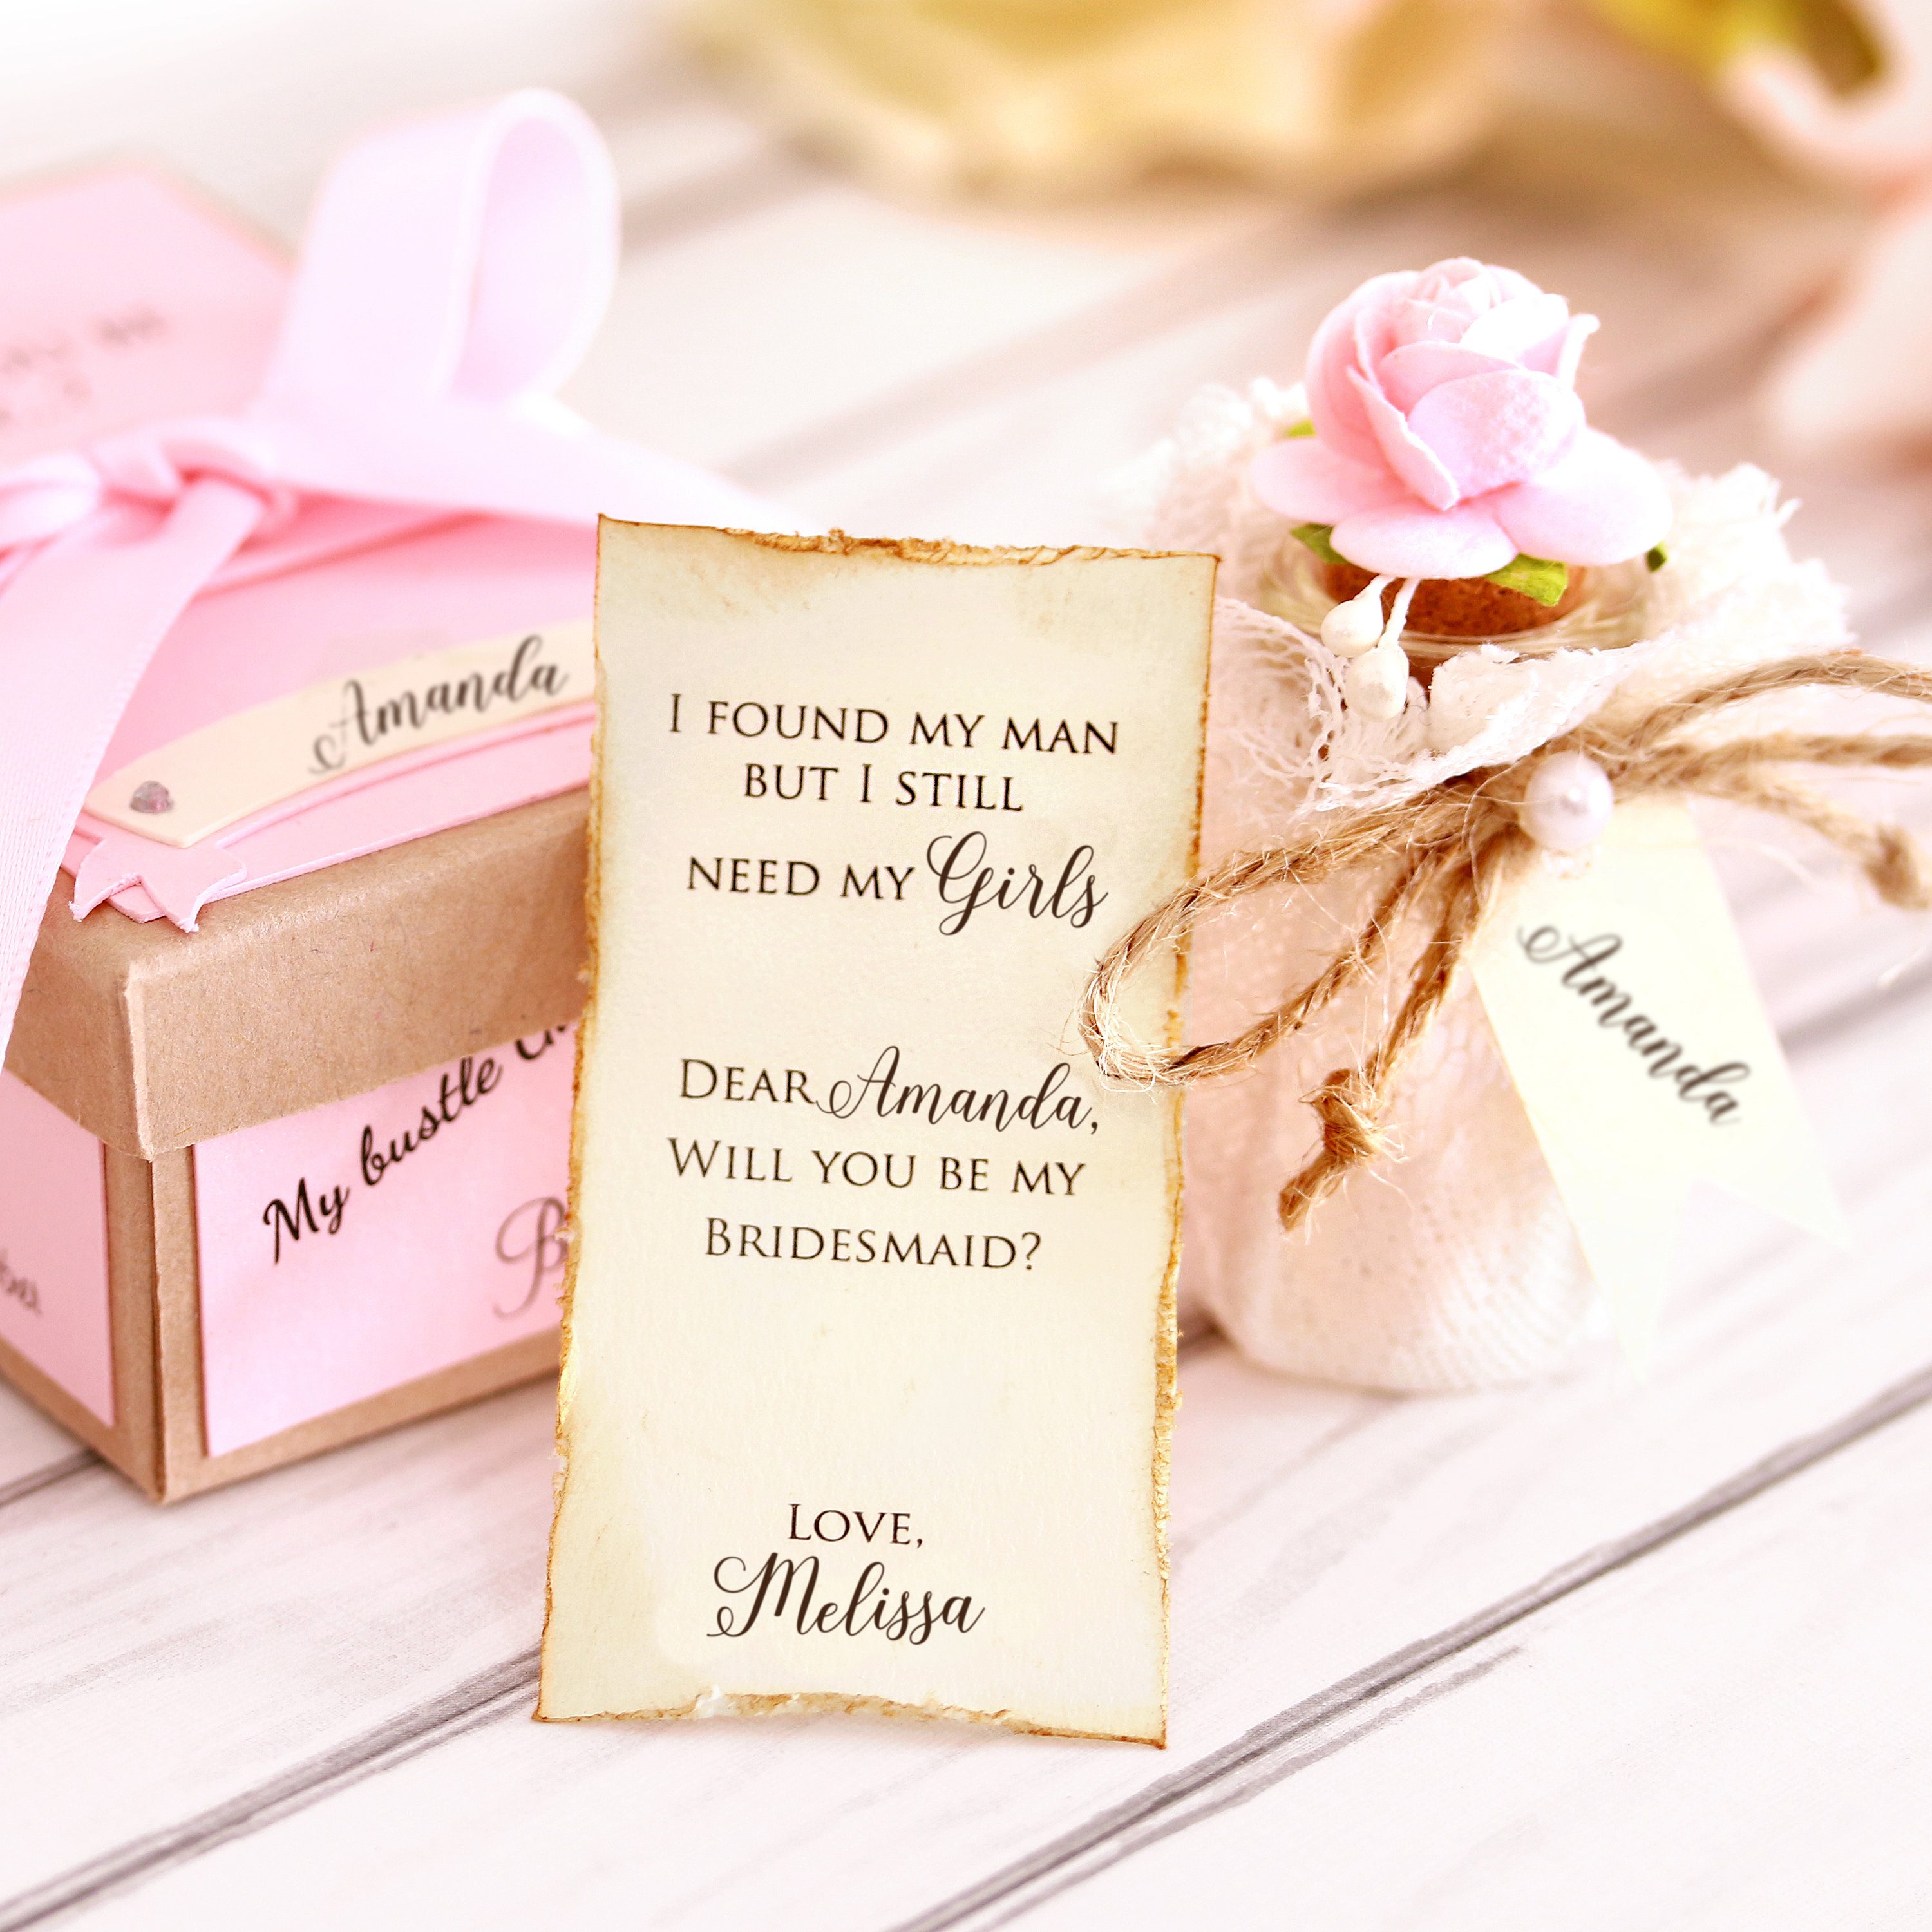 Amanda
My bustle
I FOUND MY MAN
BUT I STILL
NEED MY Girls
DEAR Amanda,
WILL YOU BE MY
BRIDESMAID?
LOVE,
Melissa
Amanda